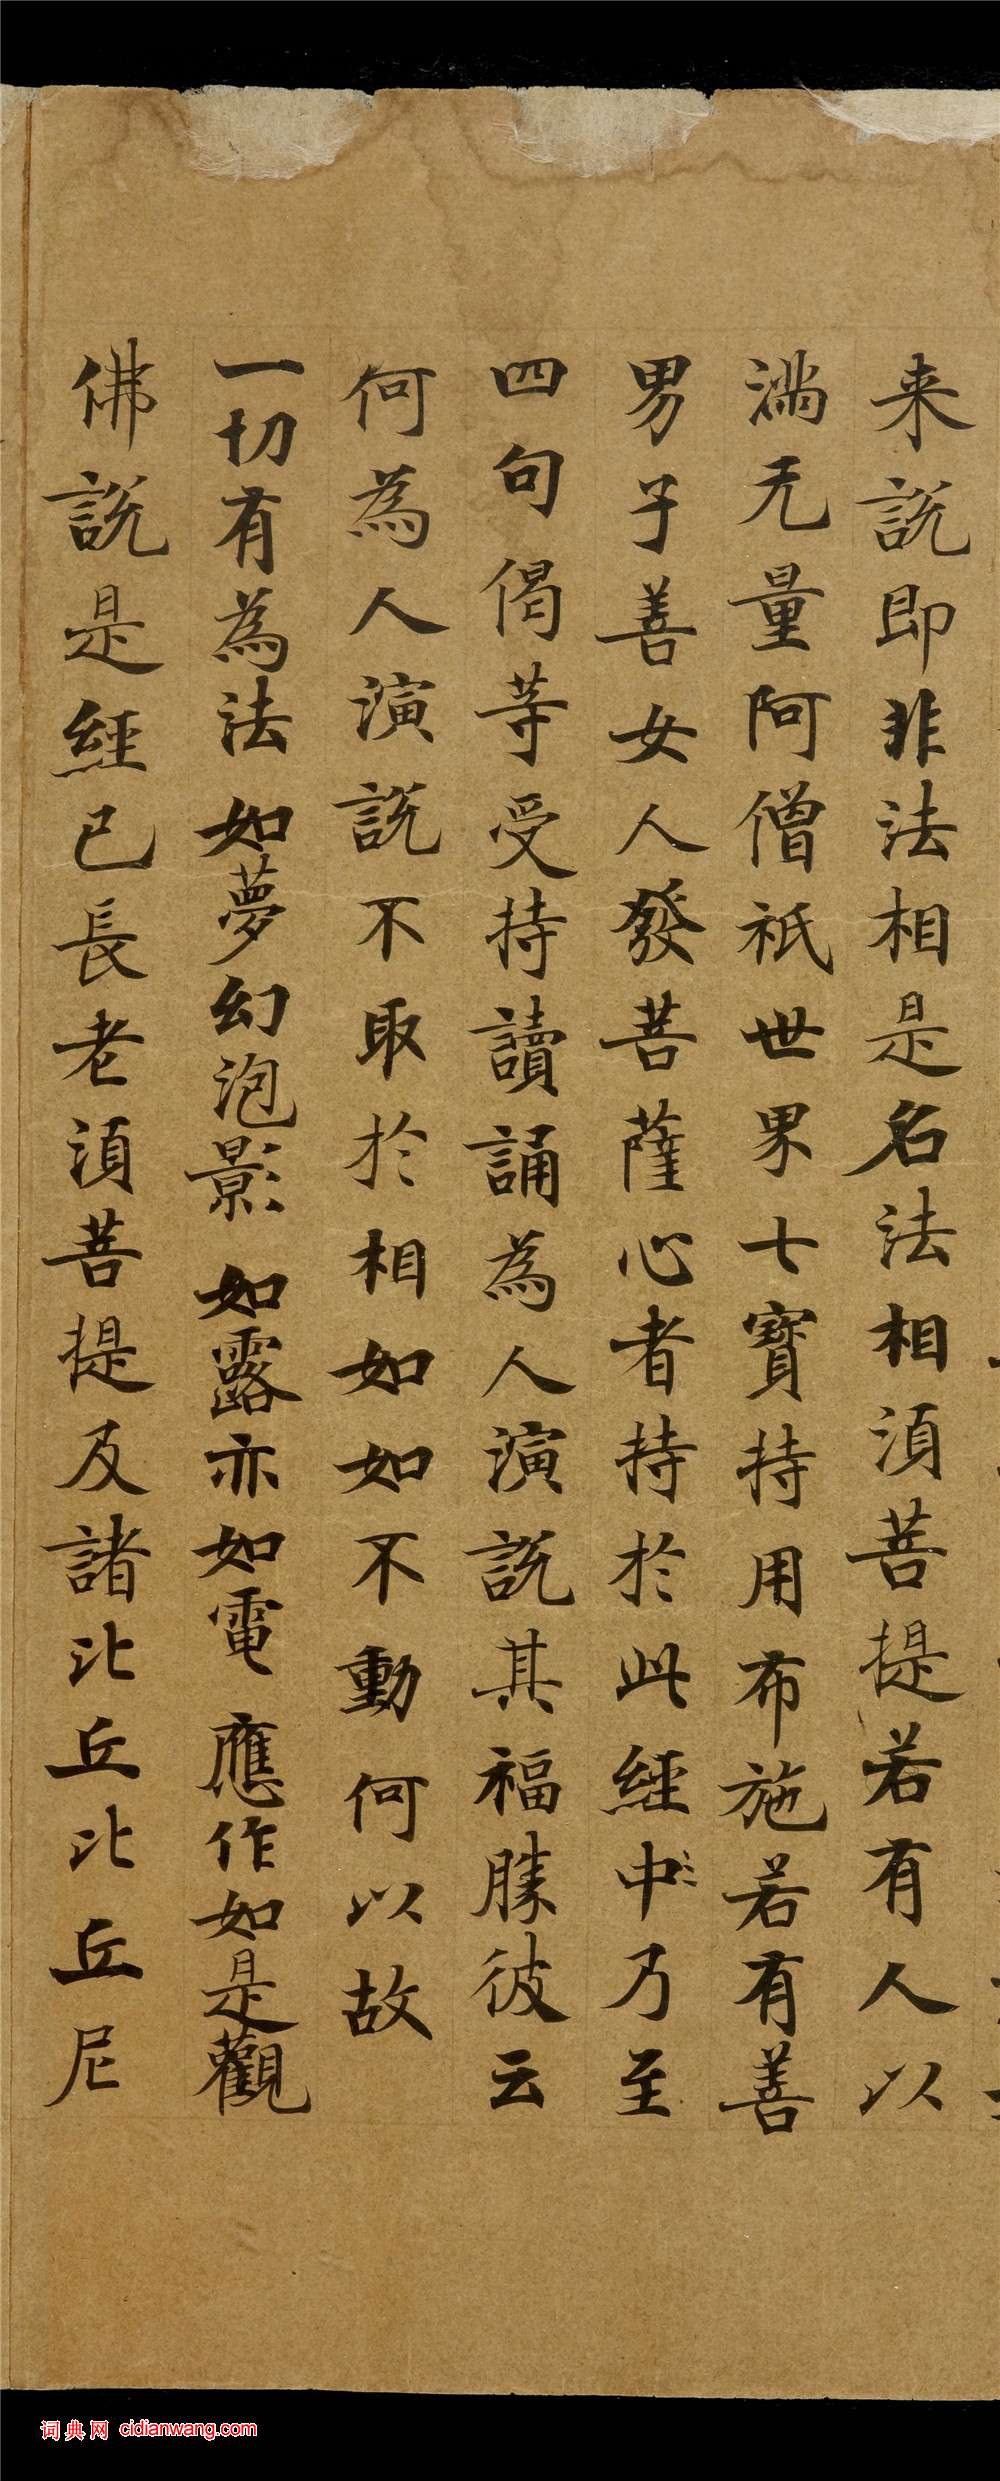 来説即非法相是名法相湏菩提若有人以
滿无量阿僧祇世界七寶持用布施若有善
男子善女人發菩薩心者持於此經中乃至
四句偈等受持讀誦為人演説其福勝彼云
何為人演説不取於相如如不動何以故
一切有為法 如夢幻泡影 如露亦如電 應作如是觀
佛説是經已長老湏菩提及諸比丘比丘尼
词典网 cidianwang.com